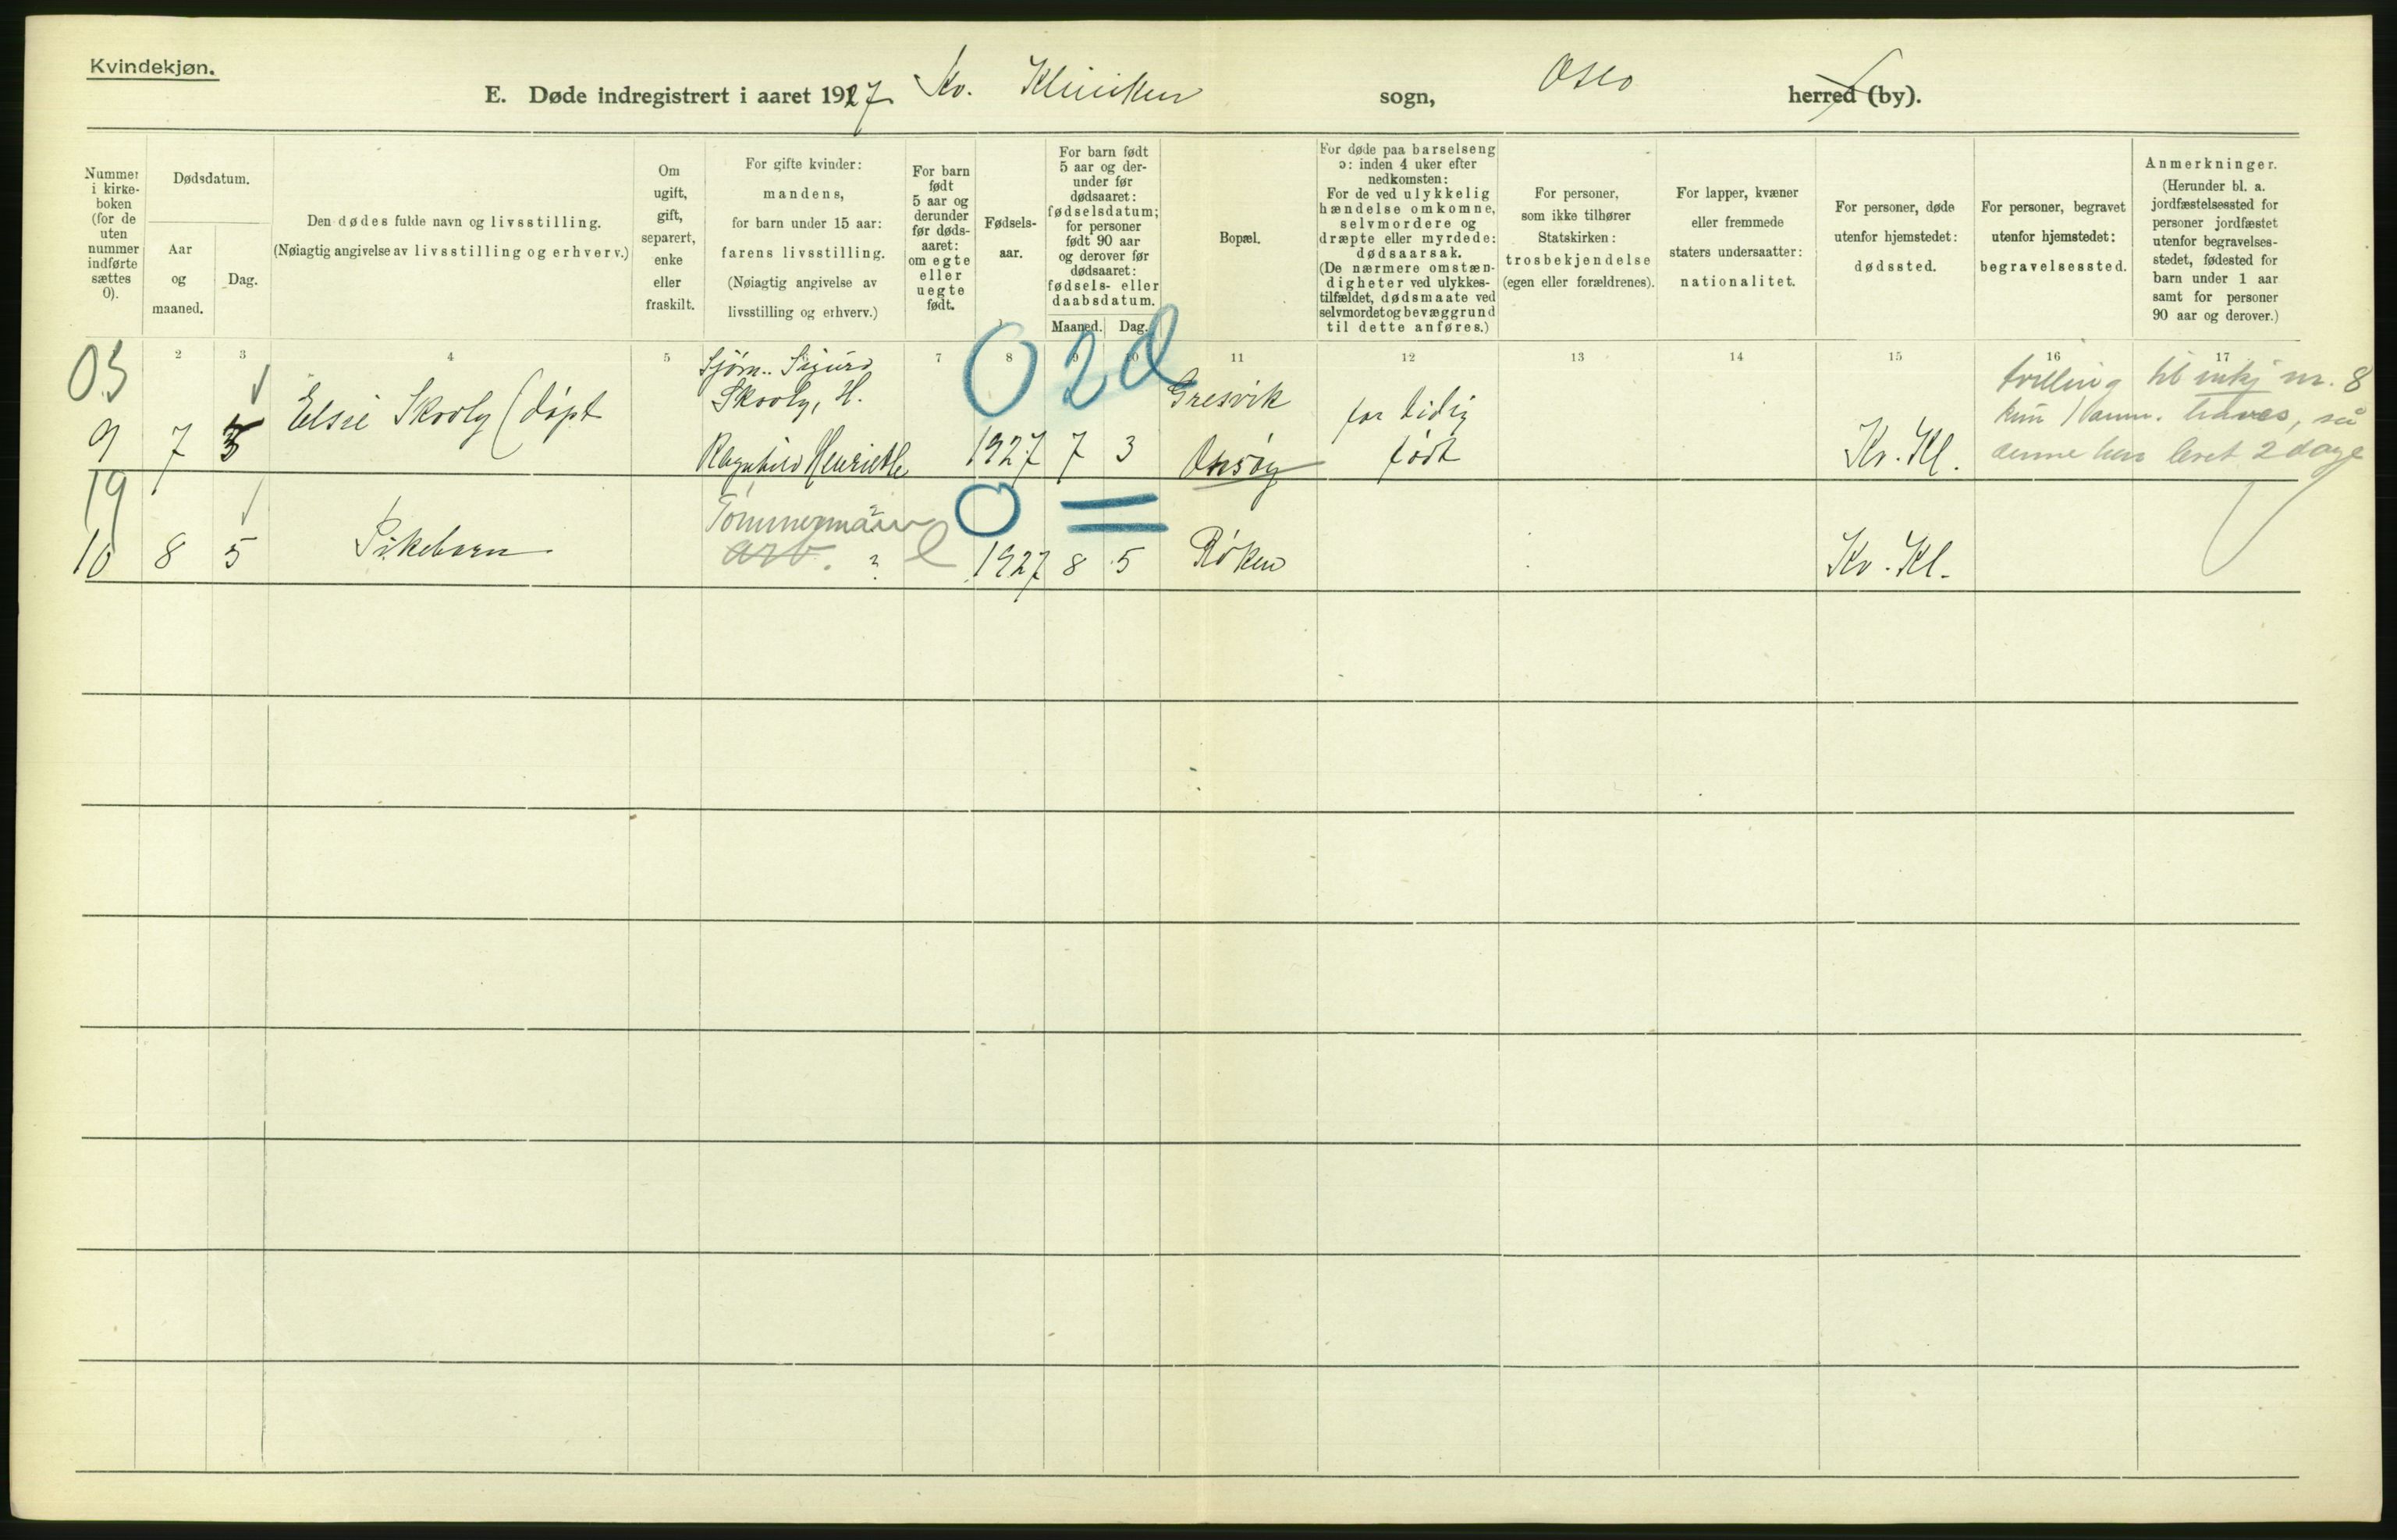 Kvindekjøn.
E. Døde indregistrert i aaret 1927 Kv. Kliniken sogn, Oslo herred (by).
Nummer i kirke-
boken
(for de
uten
nummer
indførte
sættes
0).
Dødsdatum.
Aar
og
maaned.
Dag.
Den dødes fulde navn og livsstilling.
(Nøiagtig angivelse av livsstilling og erhverv.)
Om
ugift,
gift,
separert,
enke
eller
fraskilt.
For gifte kvinder:
mandens,
for barn under 15 aar:
farens livsstilling.
(Nøiagtig angivelse av
livsstilling og erhverv.)
For barn
født
5 aar og
derunder
før døds-
aaret:
om egte
eller
uegte
født.
Fødsels-
aar.
For barn født
5 aar og der-
under før
dødsaaret:
fødselsdatum;
for personer
født 90 aar
og derover før
dødsaaret:
fødsels- eller
daabsdatum.
Maaned. Dag.
Bopæl.
For døde paa barselseng
ɔ: inden 4 uker efter
nedkomsten:
For de ved ulykkelig
hændelse omkomne,
selvmordere og
dræpte eller myrdede:
dødsaarsak.
(De nærmere omstæn-
digheter ved ulykkes-
tilfældet, dødsmaate ved
selvmordet og bevæggrund
til dette anføres.)
For personer,
som ikke tilhører
Statskirken:
trosbekjendelse
(egen eller forældrenes).
For lapper, kvæner
eller fremmede
staters undersaatter:
nationalitet.
For personer, døde
utenfor hjemstedet:
dødssted.
For personer, begravet
utenfor hjemstedet:
begravelsessted.
Anmerkninger.
(Herunder bl. a.
jordfæstelsessted for
personer jordfæstet
utenfor begravelses-
stedet, fødested for
barn under 1 aar
samt for personer
90 aar og derover.)
2 3 4 5 7 8 9 10 11 12 13 14 15 16 17
03
0 2 d
9 7 5 Elsie Skovly (døpt
Sjøm. Sigurd
Skovly, H.
Ragnhild Henriette
1927 7 3
Gresvik
Onsøy
for tidig
født
Kv. Kl.
tvilling til mkj nr. 8
kun 1 haves, så
denne har levet 2 dage
19
10 8 5 Pikebarn
Tømmermann
arb. ?
0 =
1927 8 5 Røken
Kv. Kl.